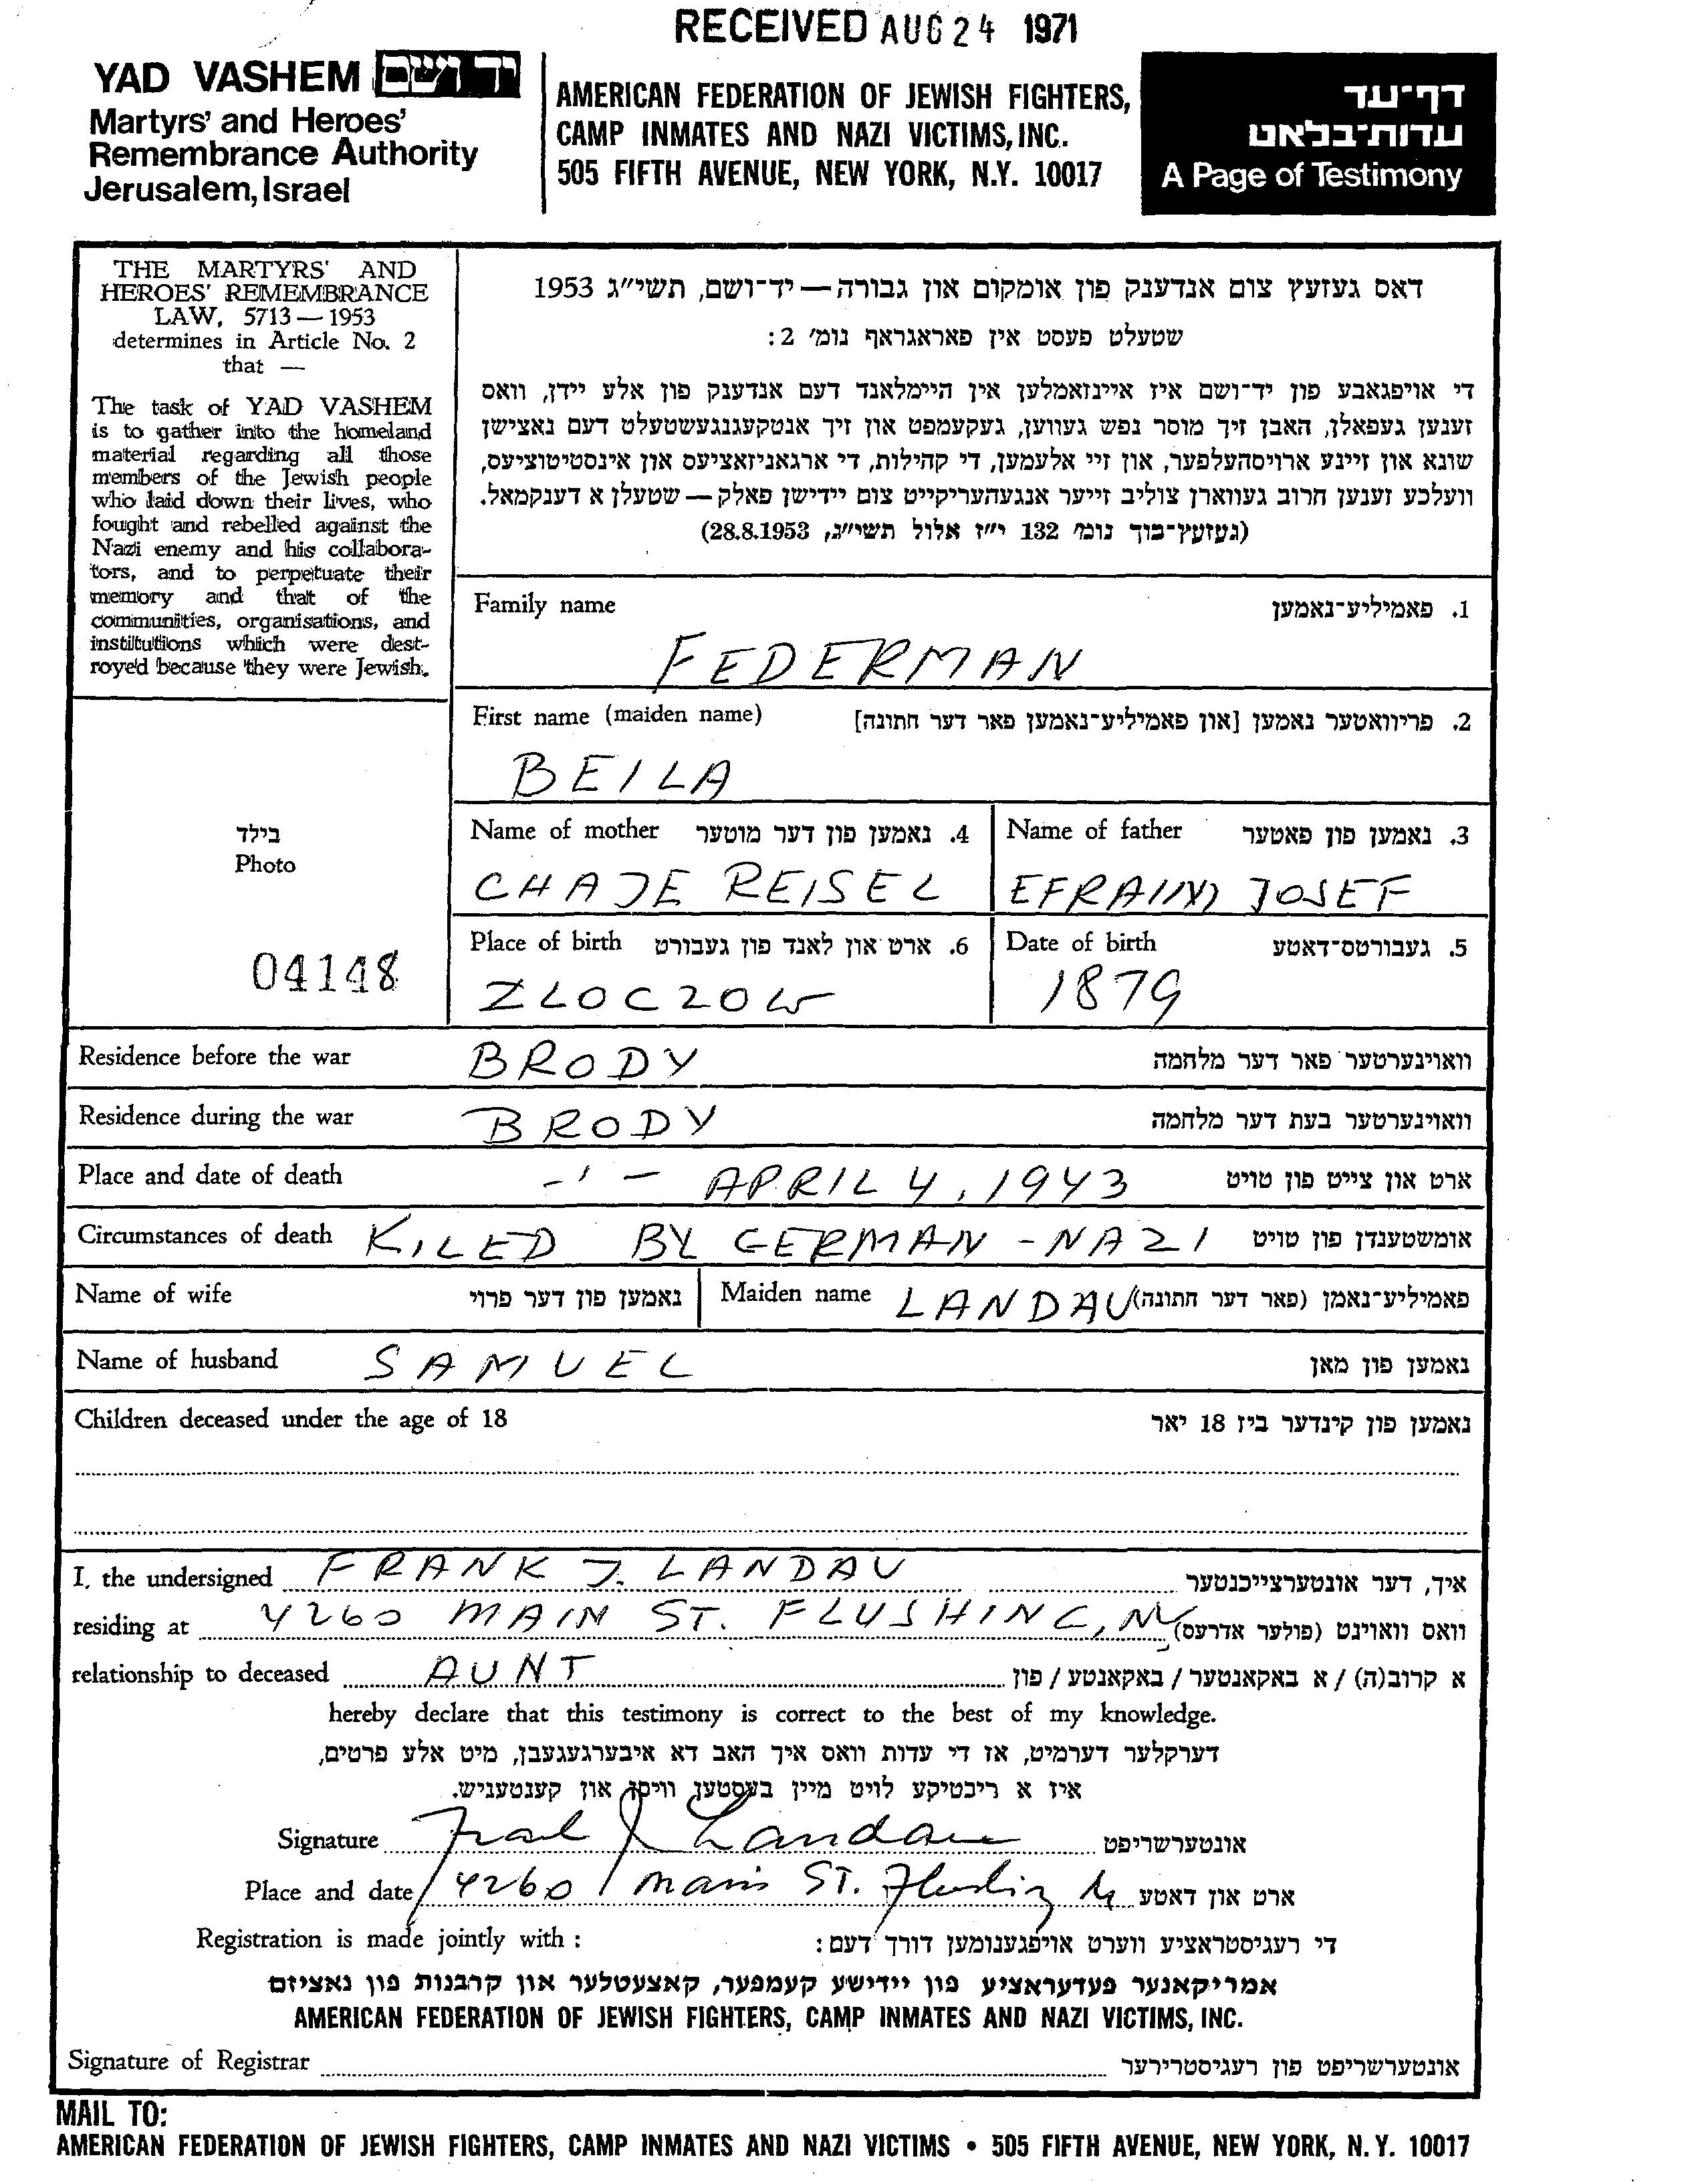 RECEIVED AUG 24 1971
YAD VASHEM יד ושם
Martyrs' and Heroes'
Remembrance Authority
Jerusalem, Israel
AMERICAN FEDERATION OF JEWISH FIGHTERS,
CAMP INMATES AND NAZI VICTIMS, INC.
505 FIFTH AVENUE, NEW YORK, N.Y. 10017
דף־עד
עדות־בלאט
A Page of Testimony
THE MARTYRS' AND
HEROES' REMEMBRANCE
LAW, 5713 — 1953
determines in Article No. 2
that —
The task of YAD VASHEM
is to gather into the homeland
material regarding all those
members of the Jewish people
who laid down their lives, who
fought and rebelled against the
Nazi enemy and his collabora-
tors, and to perpetuate their
memory and that of the
communities, organisations, and
institutions which were dest-
royed because they were Jewish.
דאס געזעץ צום אנדענק פון אומקום און גבורה — יד־ושם, תשי״ג 1953
שטעלט פעסט אין פאראגראף נומ׳ 2:
די אויפגאבע פון יד־ושם איז איינזאמלען אין היימלאנד דעם אנדענק פון אלע יידן, וואס
זענען געפאלן, האבן זיך מוסר נפש געווען, געקעמפט און זיך אנטקעגנגעשטעלט דעם נאצישן
שונא און זיינע ארויסהעלפער, און זיי אלעמען, די קהילות, די ארגאניזאציעס און אינסטיטוציעס,
וועלכע זענען חרוב געווארן צוליב זייער אנגעהעריקייט צום יידישן פאלק — שטעלן א דענקמאל.
(געזעץ־בוך נומ׳ 132 י״ז אלול תשי״ג, 28.8.1953)
Family name 1. פאמיליע־נאמען
FEDERMAN
First name (maiden name) 2. פריוואטער נאמען [און פאמיליע־נאמען פאר דער חתונה]
BEILA
Name of mother 4. נאמען פון דער מוטער Name of father 3. נאמען פון פאטער
CHAJE REISEL EFRAIM JOSEF
Place of birth 6. ארט און לאנד פון געבורט Date of birth 5. געבורטס־דאטע
ZLOCZOW 1879
בילד
Photo
04148
Residence before the war BRODY וואוינערטער פאר דער מלחמה
Residence during the war BRODY וואוינערטער בעת דער מלחמה
Place and date of death -'- APRIL 4, 1943 ארט און צייט פון טויט
Circumstances of death KILED BY GERMAN - NAZI אומשטענדן פון טויט
Name of wife נאמען פון דער פרוי Maiden name LANDAU פאמיליע־נאמן (פאר דער חתונה)
Name of husband SAMUEL נאמען פון מאן
Children deceased under the age of 18 נאמען פון קינדער ביז 18 יאר
I, the undersigned FRANK J. LANDAU איך, דער אונטערצייכנטער
residing at 4260 MAIN ST. FLUSHING, NY וואס וואוינט (פולער אדרעס)
relationship to deceased AUNT א קרוב(ה) / א באקאנטער / באקאנטע / פון
hereby declare that this testimony is correct to the best of my knowledge.
דערקלער דערמיט, אז די עדות וואס איך האב דא איבערגעגעבן, מיט אלע פרטים,
איז א ריכטיקע לויט מיין בעסטען וויסן און קענטעניש.
Signature Frank J Landau אונטערשריפט
Place and date 4260 Main ST. Flushing NY ארט און דאטע
Registration is made jointly with : די רעגיסטראציע ווערט אויפגענומען דורך דעם:
אמריקאנער פעדעראציע פון יידישע קעמפער, קאצעטלער און קרבנות פון נאציזם
AMERICAN FEDERATION OF JEWISH FIGHTERS, CAMP INMATES AND NAZI VICTIMS, INC.
Signature of Registrar אונטערשריפט פון רעגיסטרירער
MAIL TO:
AMERICAN FEDERATION OF JEWISH FIGHTERS, CAMP INMATES AND NAZI VICTIMS • 505 FIFTH AVENUE, NEW YORK, N.Y. 10017